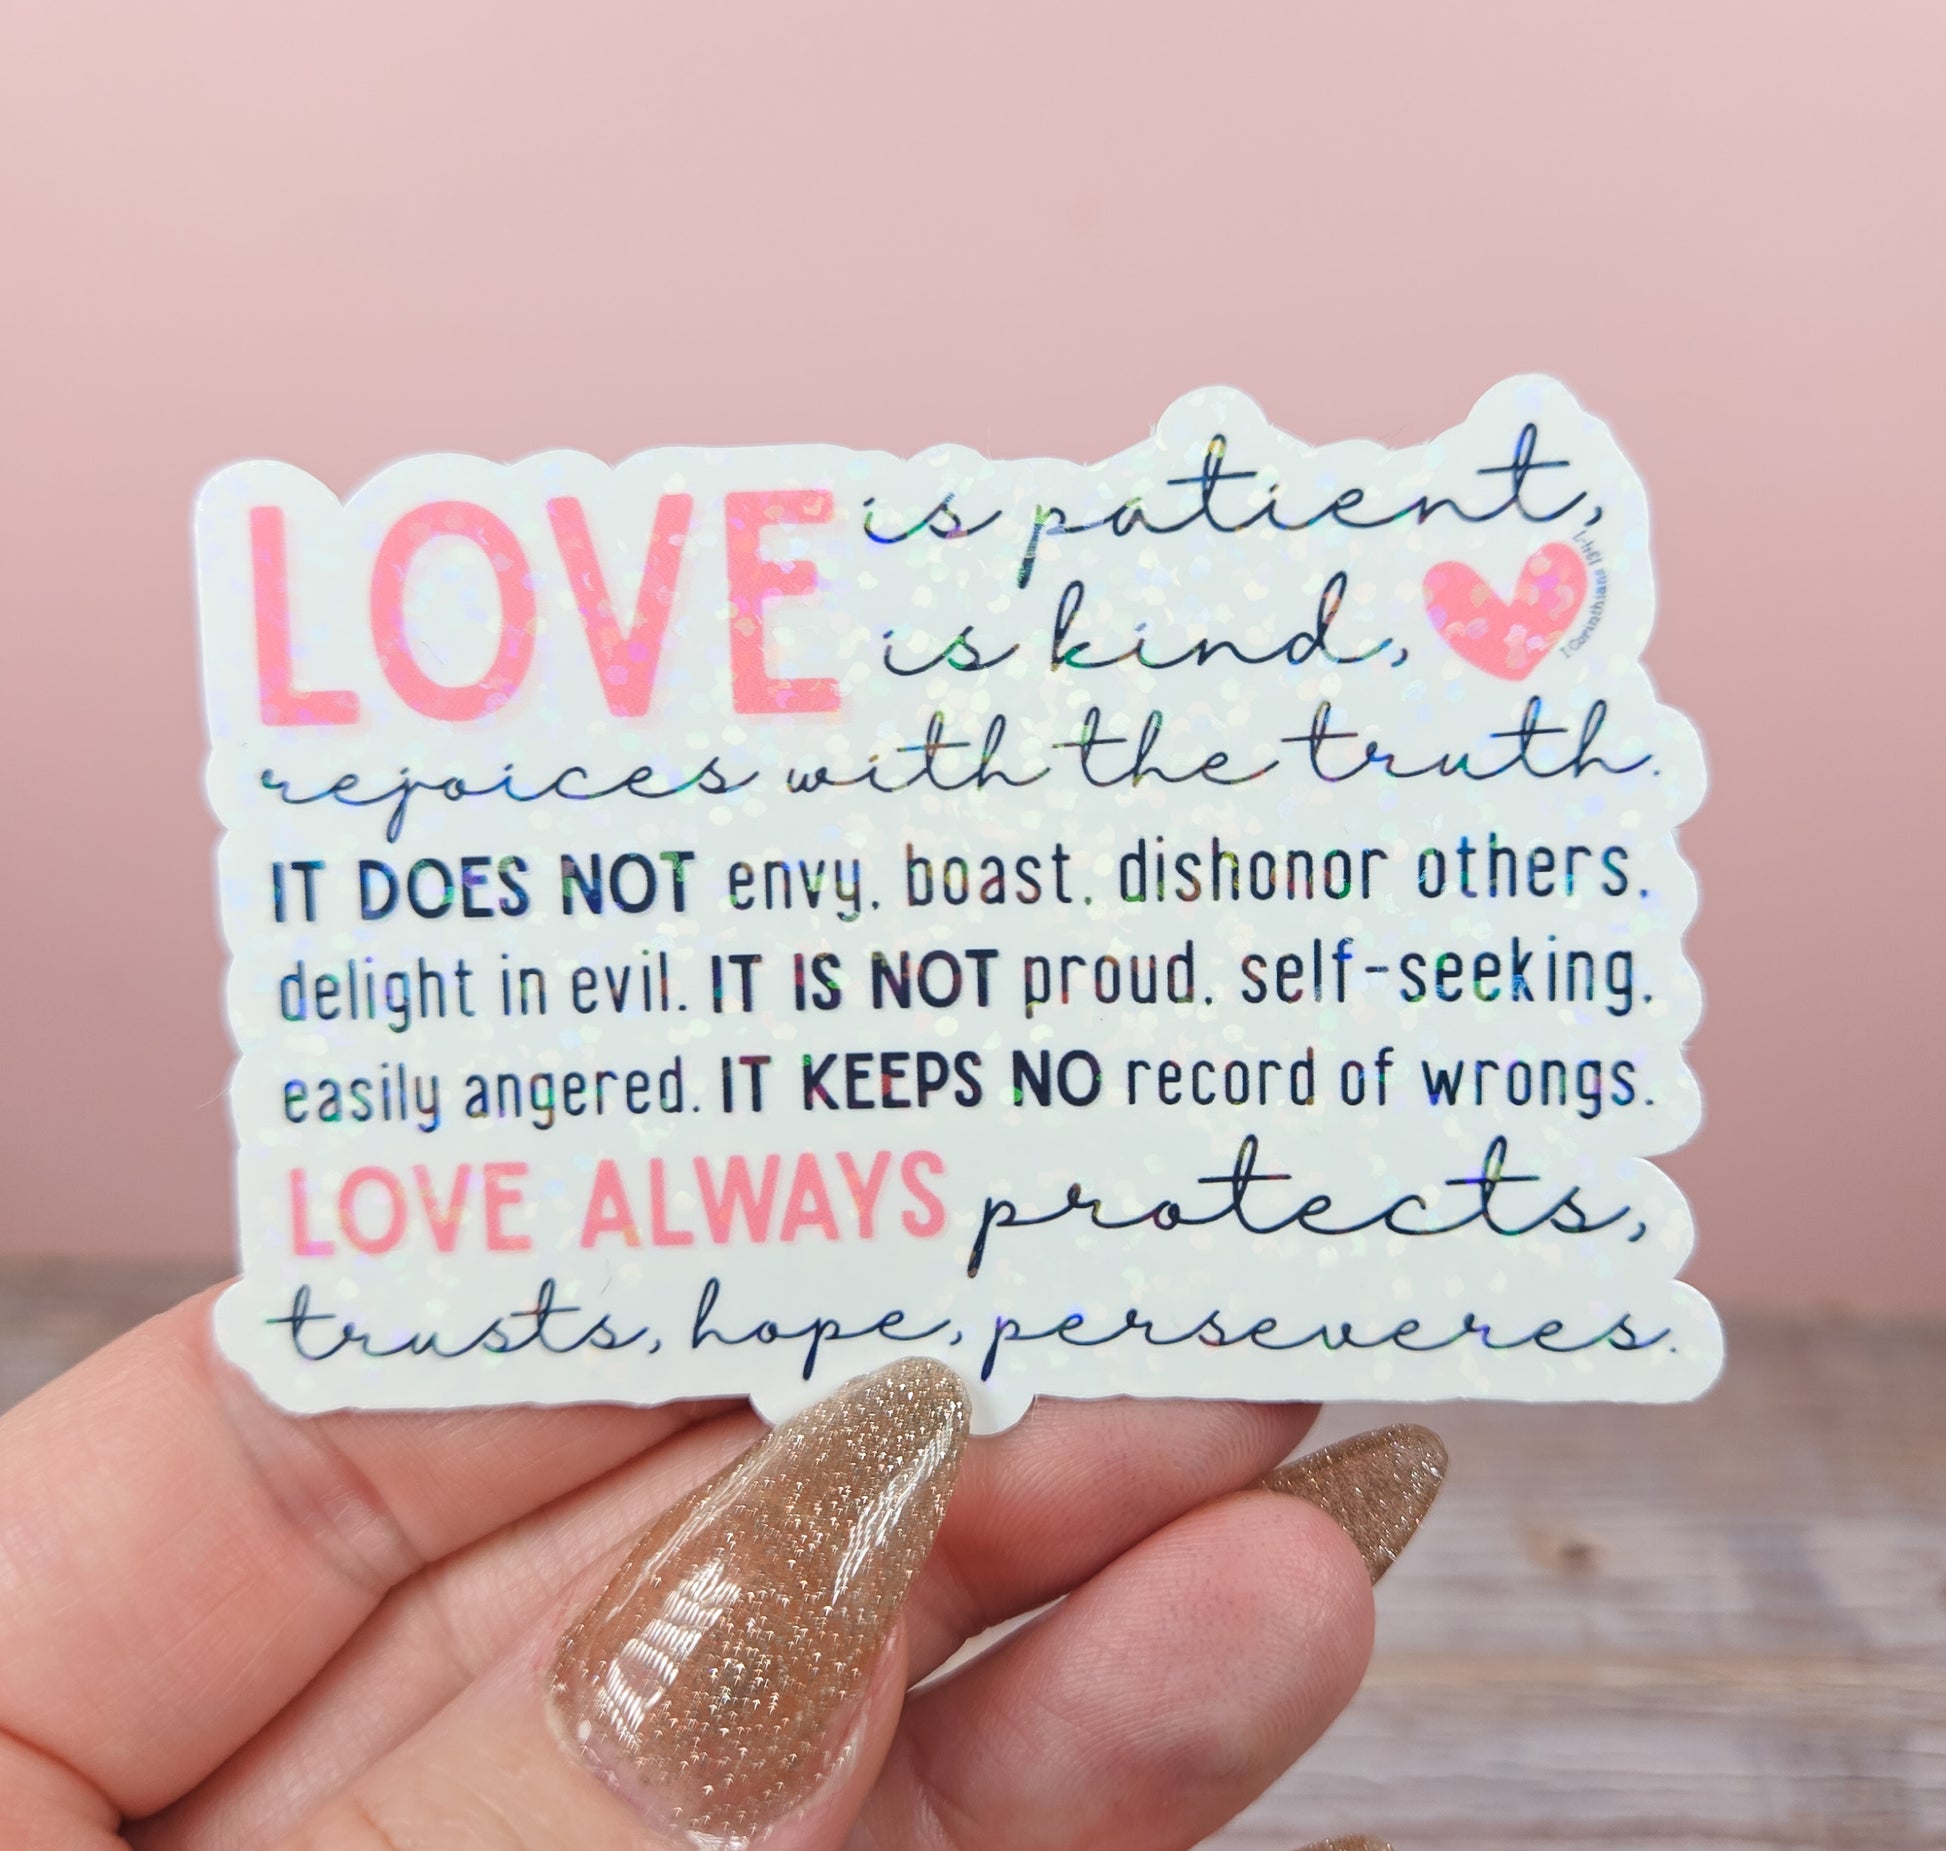 LOVE is patient,
is kind,
1 Corinthians 13:4-7
rejoices with the truth.
IT DOES NOT envy, boast, dishonor others,
delight in evil. IT IS NOT proud, self-seeking,
easily angered. IT KEEPS NO record of wrongs.
LOVE ALWAYS protects,
trusts, hope, perseveres.